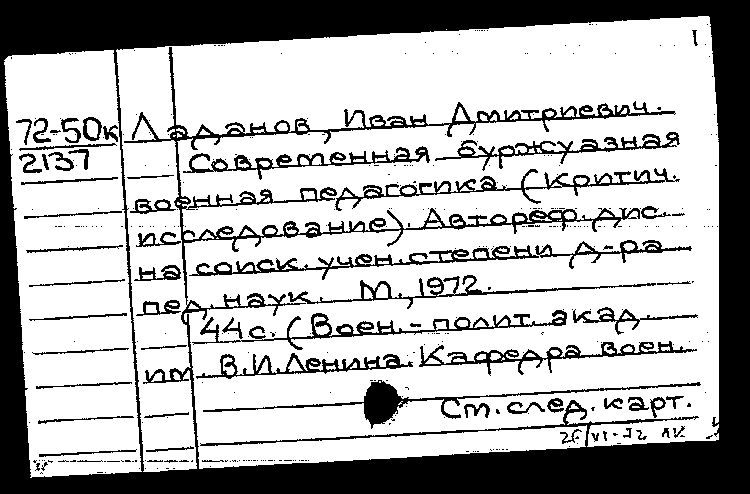 I
72-50к Ладанов, Иван Дмитриевич.
2137 Современная буржуазная
военная педагогика. (Критич.
исследование). Автореф. дис.
на соиск. учен. степени д-ра
пед. наук. М., 1972.
44с. (Воен.-полит. акад.
им. В.И.Ленина. Кафедра воен.
См. след. карт.
26/VI-72